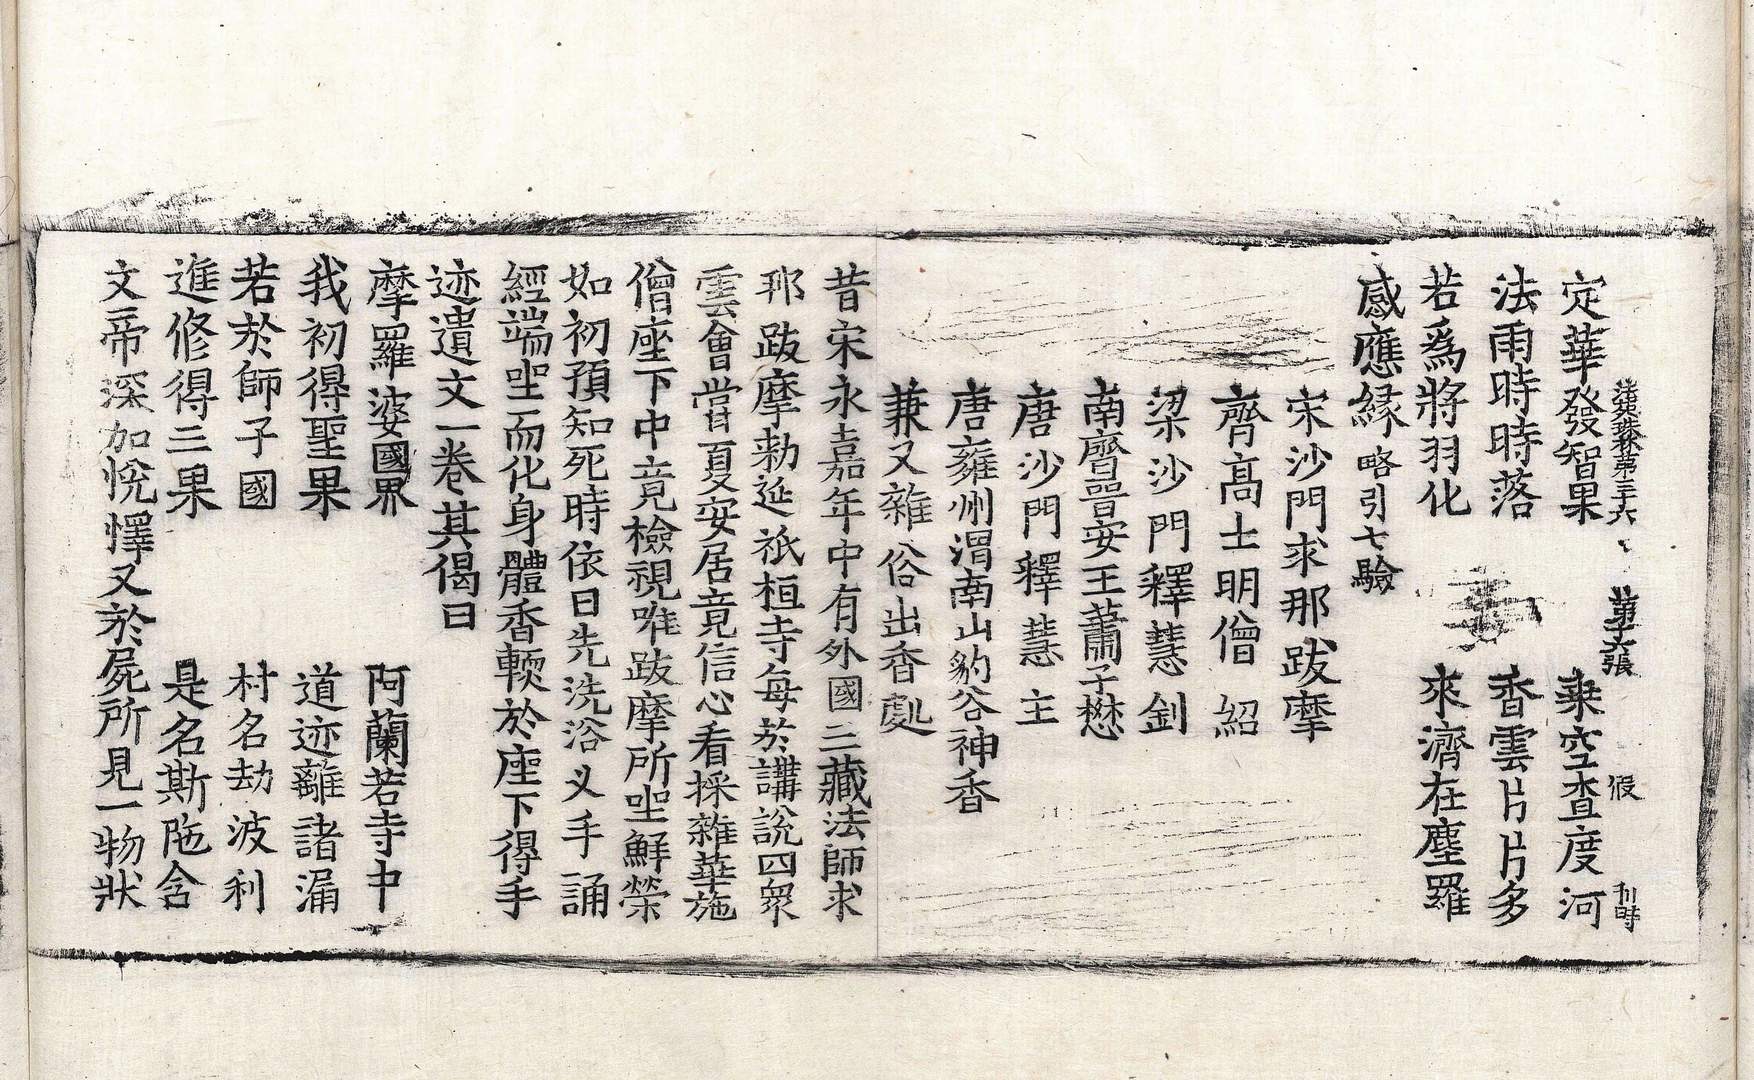 法苑珠林第三十六　第十六張　假　刊時
定華發智果　乘空査度河
法雨時時落　香雲片片多
若爲將羽化　來濟在塵羅
感應緣略引七驗
宋沙門求那跋摩
齊高士明僧紹
梁沙門釋慧釗
南齊晉安王蕭子懋
唐沙門釋慧主
唐雍州渭南山豹谷神香
兼又雜俗出香處
昔宋永嘉年中有外國三藏法師求
那跋摩勅延祇桓寺每於講說四衆
雲會嘗夏安居竟信心看採雜華施
僧座下中竟檢視唯跋摩所坐鮮榮
如初預知死時依日先洗浴叉手誦
經端坐而化身體香輭於座下得手
迹遺文一卷其偈曰
摩羅婆國界　阿蘭若寺中
我初得聖果　道迹離諸漏
若於師子國　村名劫波利
進修得三果　是名斯陁含
文帝深加悅懌又於屍所見一物狀